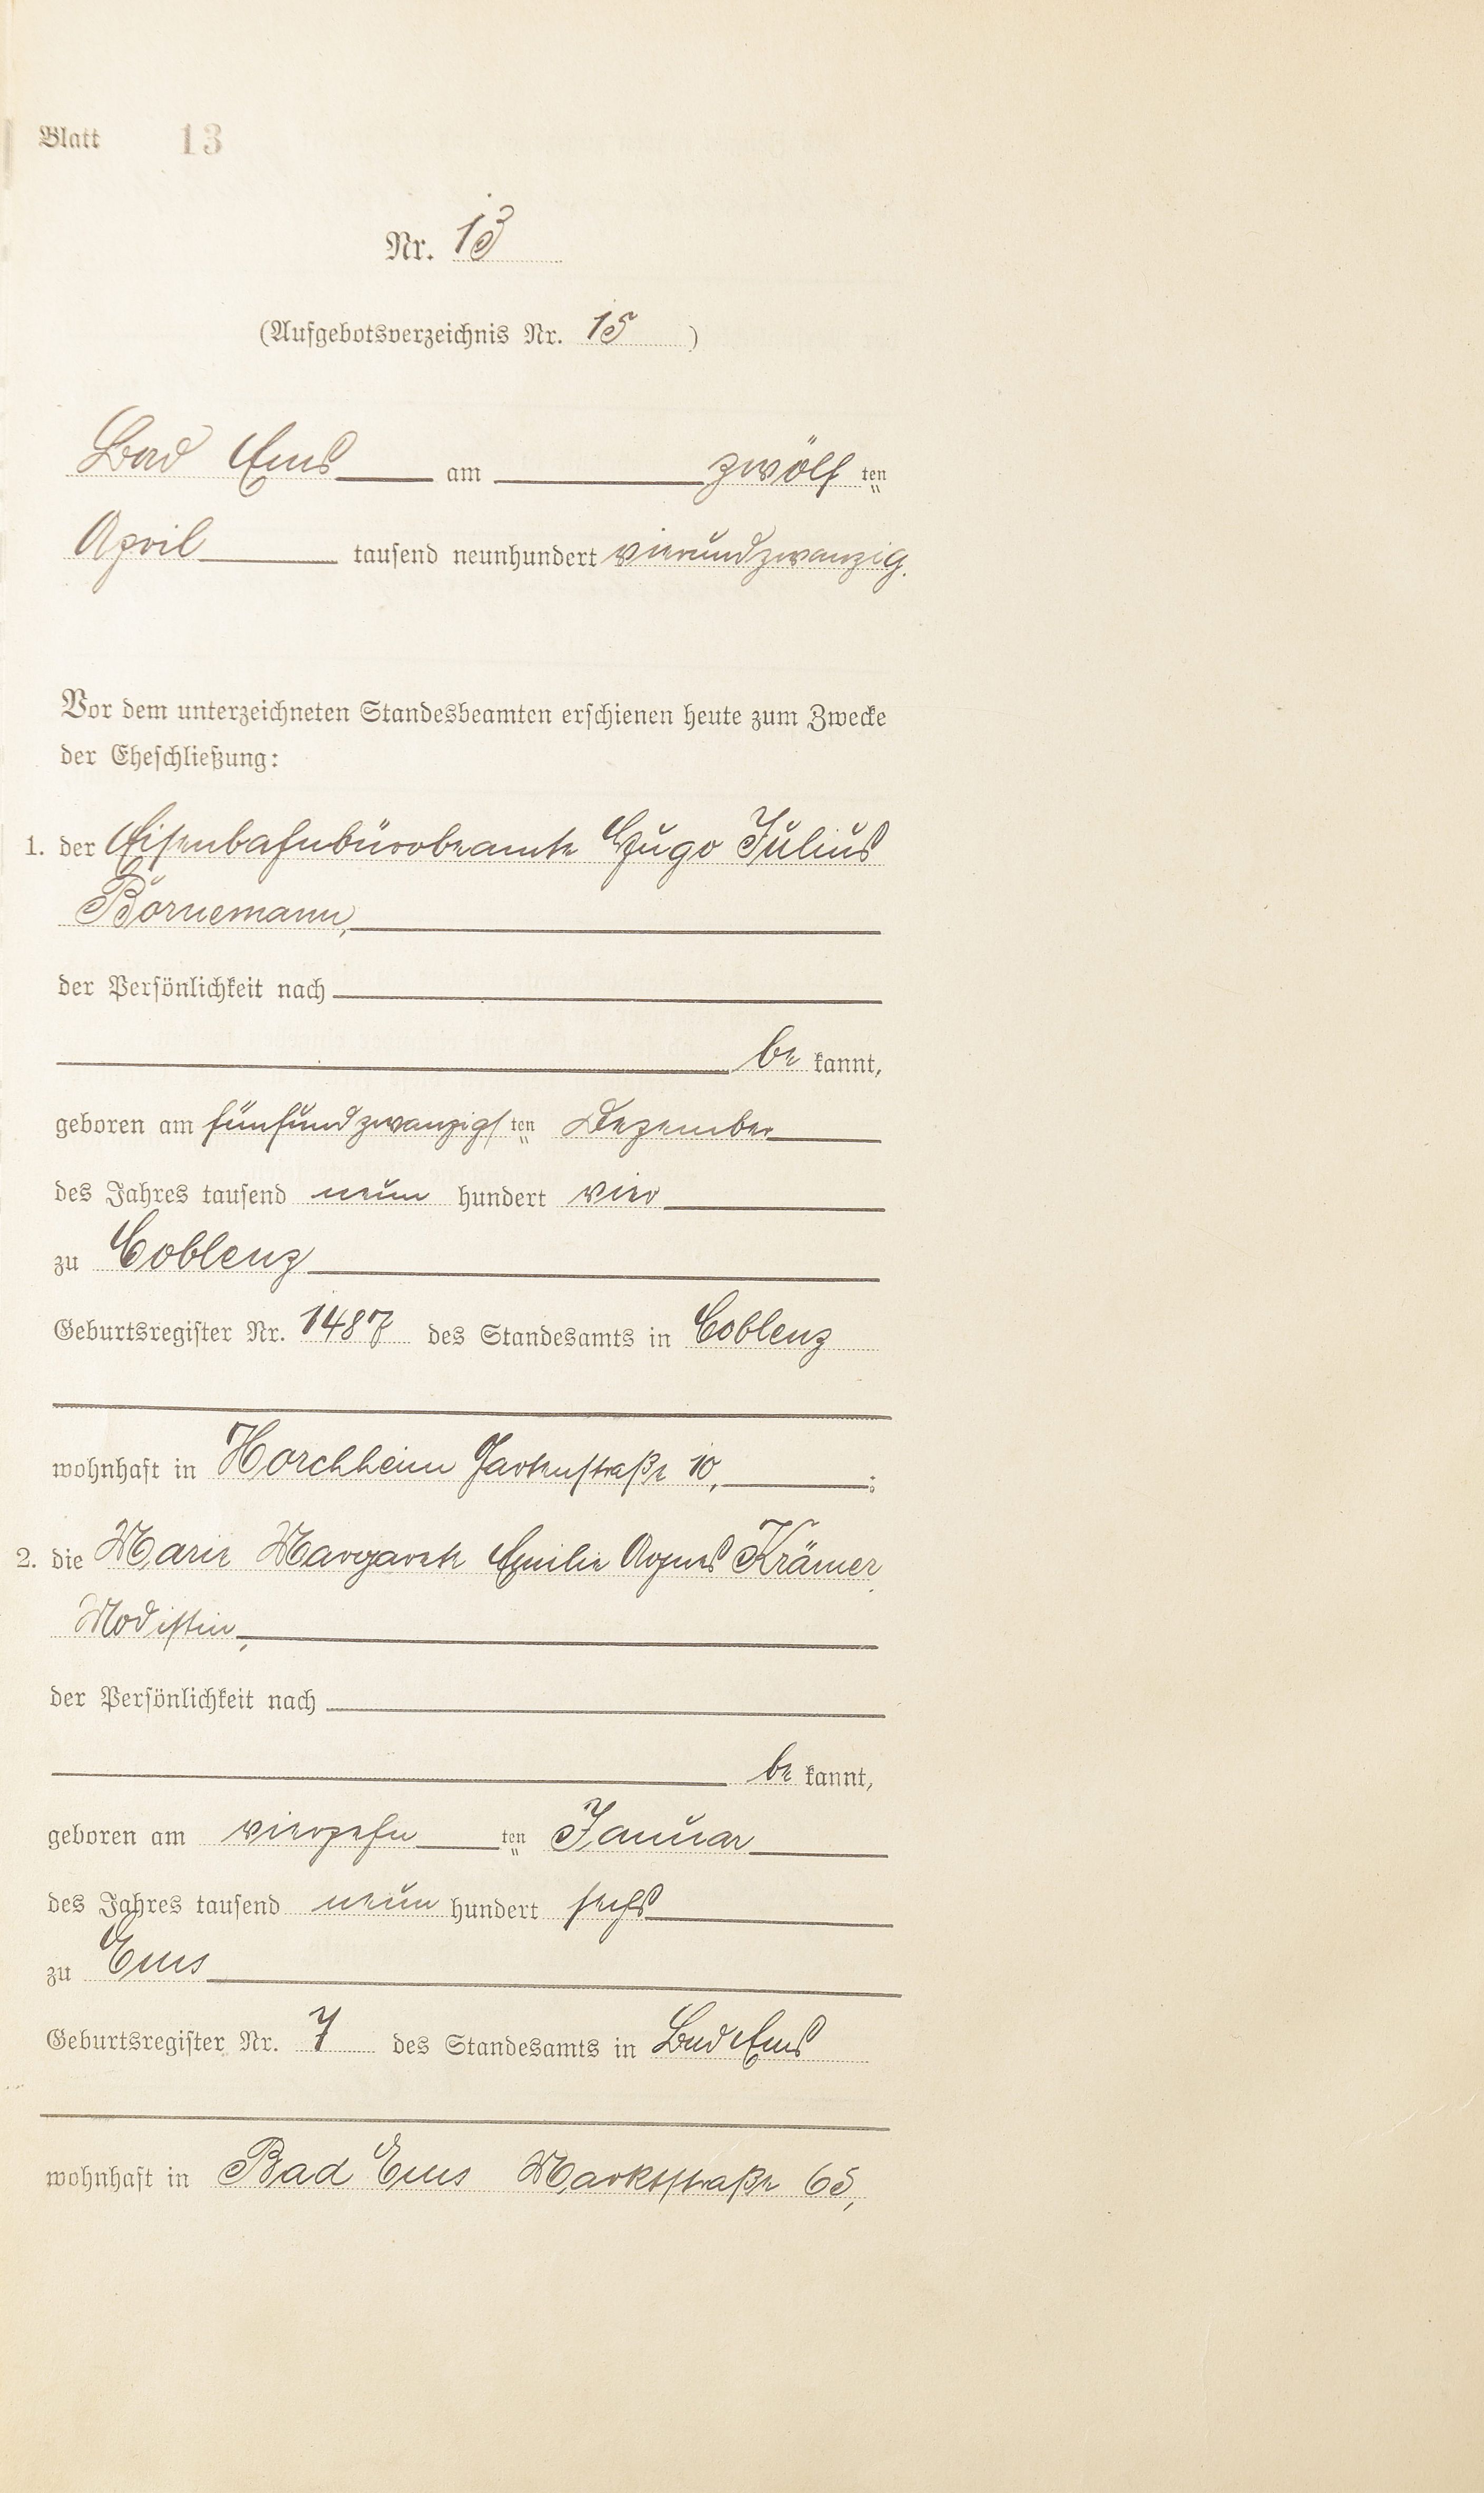 Blatt 13
Nr. 13
(Aufgebotsverzeichnis Nr. 15)
Bad Ems am zwölf ten
April tausend neunhundert vierundzwanzig.
Vor dem unterzeichneten Standesbeamten erschienen heute zum Zwecke
der Eheschließung:
1. der Eisenbahnbürobeamte Hugo Julius
Bornemann,
der Persönlichkeit nach
be kannt,
geboren am fünfundzwanzigsten Dezember
des Jahres tausend neun hundert vier
zu Coblenz
Geburtsregister Nr. 1487 des Standesamts in Coblenz
wohnhaft in Horchheim Gartenstraße 10, ;
2. die Marie Margarete Emilie Agnes Krämer,
Modistin,
der Persönlichkeit nach
be kannt,
geboren am vierzehn ten Januar
des Jahres tausend neun hundert sechs
zu Ems
Geburtsregister Nr. 7 des Standesamts in Bad Ems
wohnhaft in Bad Ems Marktstraße 65,